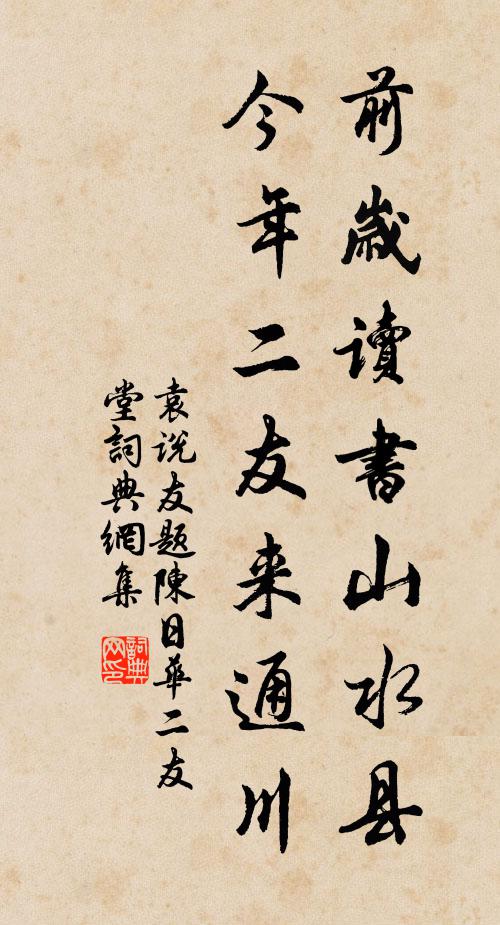 前歲讀書山水县
今年二友来通川
袁说友题陳日華二友
堂詞典網集
詞典网印